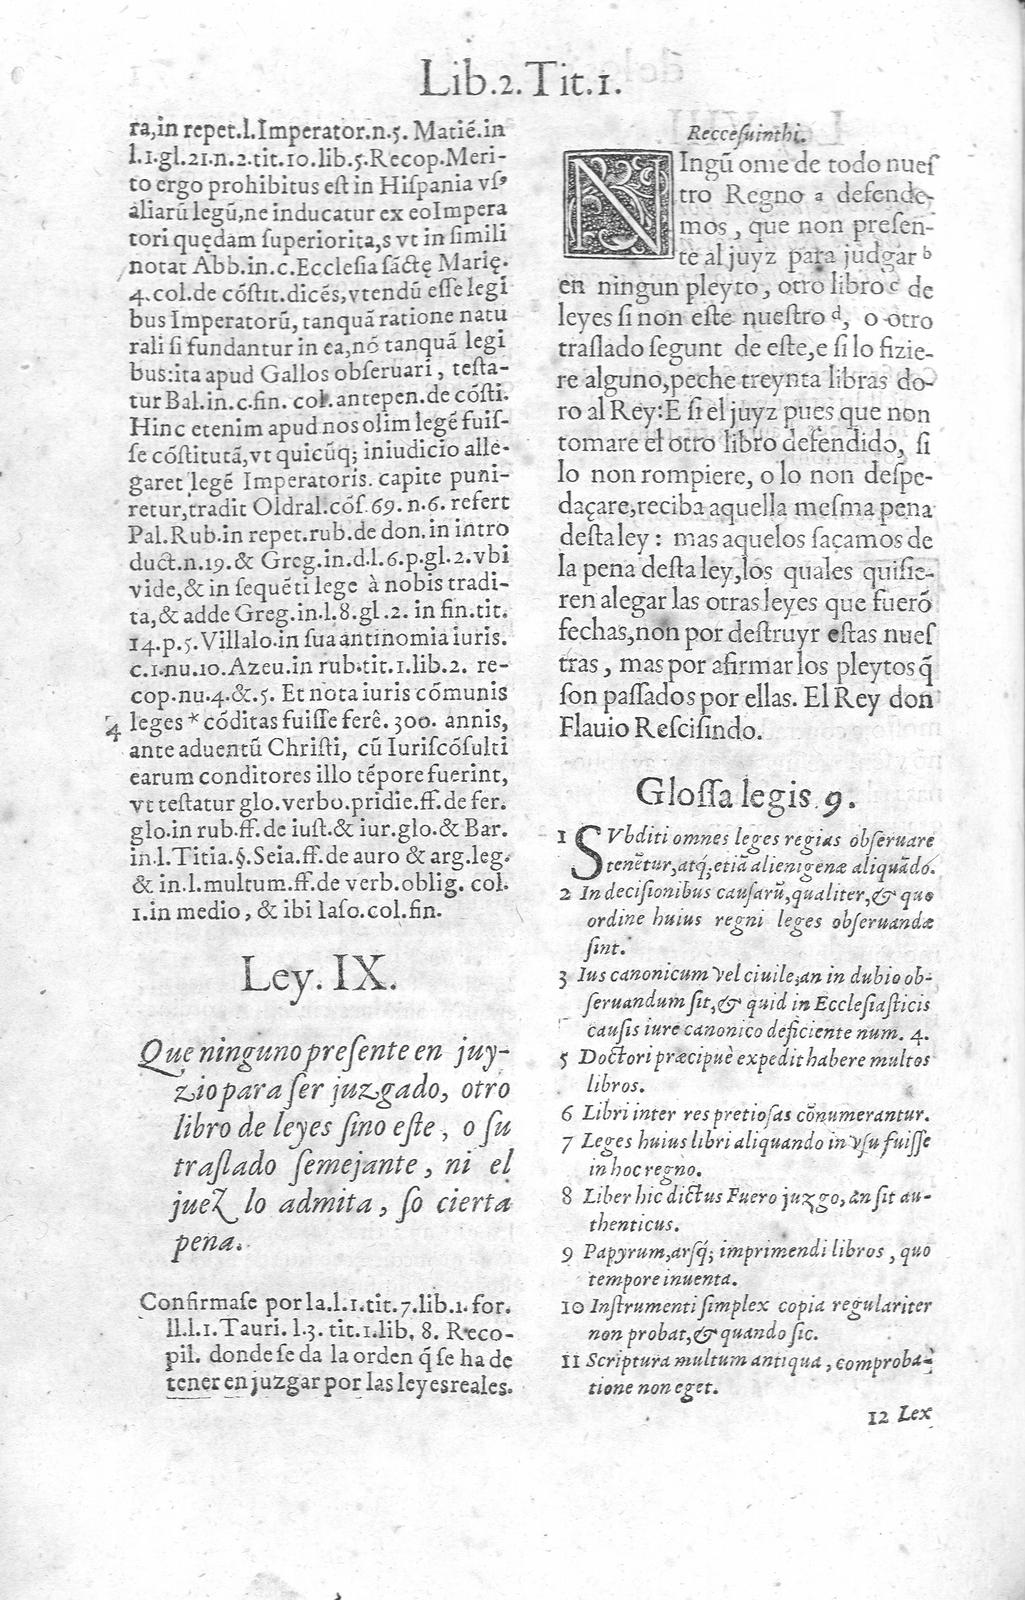 Lib.2.Tit.1.
ra,in repet.l.Imperator.n.5. Matiẽ.in
l.1.gl.21.n.2.tit.10.lib.5.Recop.Meri-
to ergo prohibitus eſt in Hiſpania vſꝰ
aliarũ legũ,ne inducatur ex eo Impera
tori quędam ſuperiorita,s vt in ſimili
notat Abb.in.c.Eccleſia ſãctę Marię.
4.col.de cõſtit.dicẽs,vtendũ eſſe legi
bus Imperatorũ, tanquã ratione natu
rali ſi fundantur in ea,nõ tanquã legi
bus:ita apud Gallos obſeruari, teſta-
tur Bal.in.c.fin. col.antepen.de cõſti.
Hinc etenim apud nos olim legẽ fuiſ-
ſe cõſtitutã,vt quicũq; in iudicio alle-
garet legẽ Imperatoris. capite puni-
retur,tradit Oldral.cõſ.69. n.6. refert
Pal.Rub.in repet.rub.de don.in intro
duct.n.19.& Greg.in.d.l.6.p.gl.2.vbi
vide,& in ſequẽti lege à nobis tradi-
ta,& adde Greg.in.l.8.gl.2. in fin.tit.
14.p.5.Villalo.in ſua antinomia iuris.
c.1.nu.10.Azeu.in rub.tit.1.lib.2. re-
cop.nu.4.&.5. Et nota iuris cõmunis
4 leges * cõditas fuiſſe ferê.300. annis,
ante aduentũ Chriſti, cũ Iuriſcõſulti
earum conditores illo tẽpore fuerint,
vt teſtatur glo.verbo.pridie.ff.de fer.
glo.in rub.ff.de iuſt.& iur.glo.& Bar.
in.l.Titia.§.Seia.ff.de auro & arg.leg.
& in.l.multum.ff.de verb.oblig. col.
1.in medio, & ibi Iaſo.col.fin.
Ley.IX.
Que ninguno preſente en juy-
zio para ſer juzgado, otro
libro de leyes ſino eſte, o ſu
traſlado ſemejante, ni el
juez lo admita, ſo cierta
pena.
Confirmaſe por la.l.1.tit.7.lib.1.for.
ll.l.1.Tauri. l.3. tit.1.lib. 8. Reco-
pil. donde ſe da la orden q̃ ſe ha de
tener en juzgar por las leyes reales.
Recceſuinthi.
NIngũ ome de todo nueſ
tro Regno a defende-
mos, que non preſen-
te al juyz para judgar b
en ningun pleyto, otro libro c de
leyes ſi non eſte nueſtro d, o otro
traſlado ſegunt de eſte,e ſi lo fizie-
re alguno,peche treynta libras do-
ro al Rey:E ſi el juyz pues que non
tomare el otro libro defendido, ſi
lo non rompiere, o lo non deſpe-
daçare,reciba aquella meſma pena
deſta ley: mas aquelos ſaçamos de
la pena deſta ley,los quales quiſie-
ren alegar las otras leyes que fuerõ
fechas,non por deſtruyr eſtas nueſ
tras, mas por afirmar los pleytos q̃
ſon paſſados por ellas. El Rey don
Flauio Reſciſindo.
Gloſſa legis 9.
1 SVbditi omnes leges regias obſeruare
tenẽtur,atq; etiã alienigenæ aliquãdo.
2 In deciſionibus cauſarũ,qualiter,& quo
ordine huius regni leges obſeruandæ
ſint.
3 Ius canonicum vel ciuile,an in dubio ob-
ſeruandum ſit,& quid in Eccleſiaſticis
cauſis iure canonico deficiente num. 4.
5 Doctori præcipuè expedit habere multos
libros.
6 Libri inter res pretioſas cõnumerantur.
7 Leges huius libri aliquando in vſu fuiſſe
in hoc regno.
8 Liber hic dictus Fuero juzgo, an ſit au-
thenticus.
9 Papyrum,arſq; imprimendi libros, quo
tempore inuenta.
10 Inſtrumenti ſimplex copia regulariter
non probat,& quando ſic.
11 Scriptura multum antiqua, comproba-
tione non eget.
12 Lex